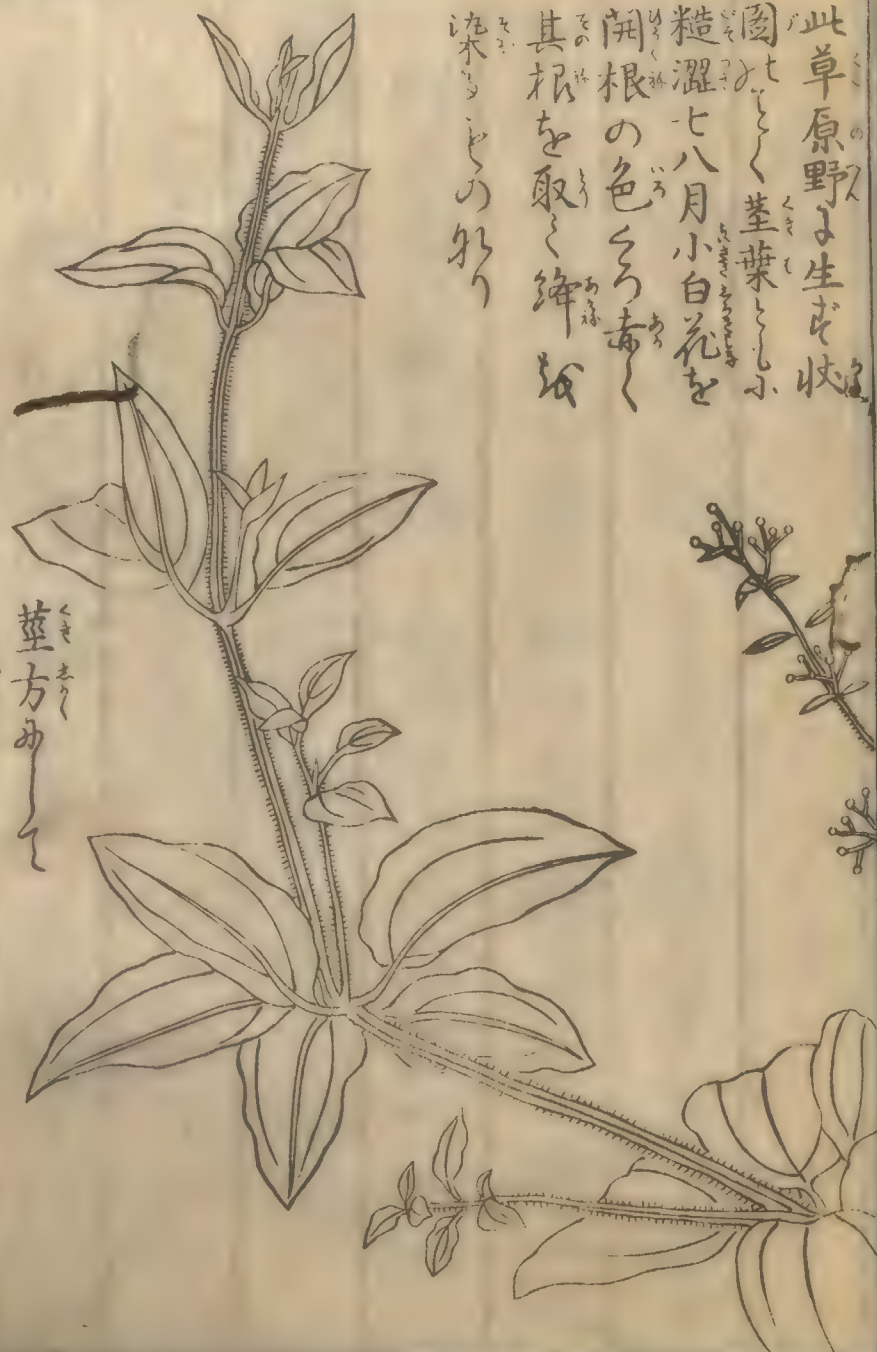 此草原野に生ず状
図のごとく茎葉ともに
糙澀七八月小白花を
開根の色くろ赤く
其根を取て絳を
染るものなり
茎方にして